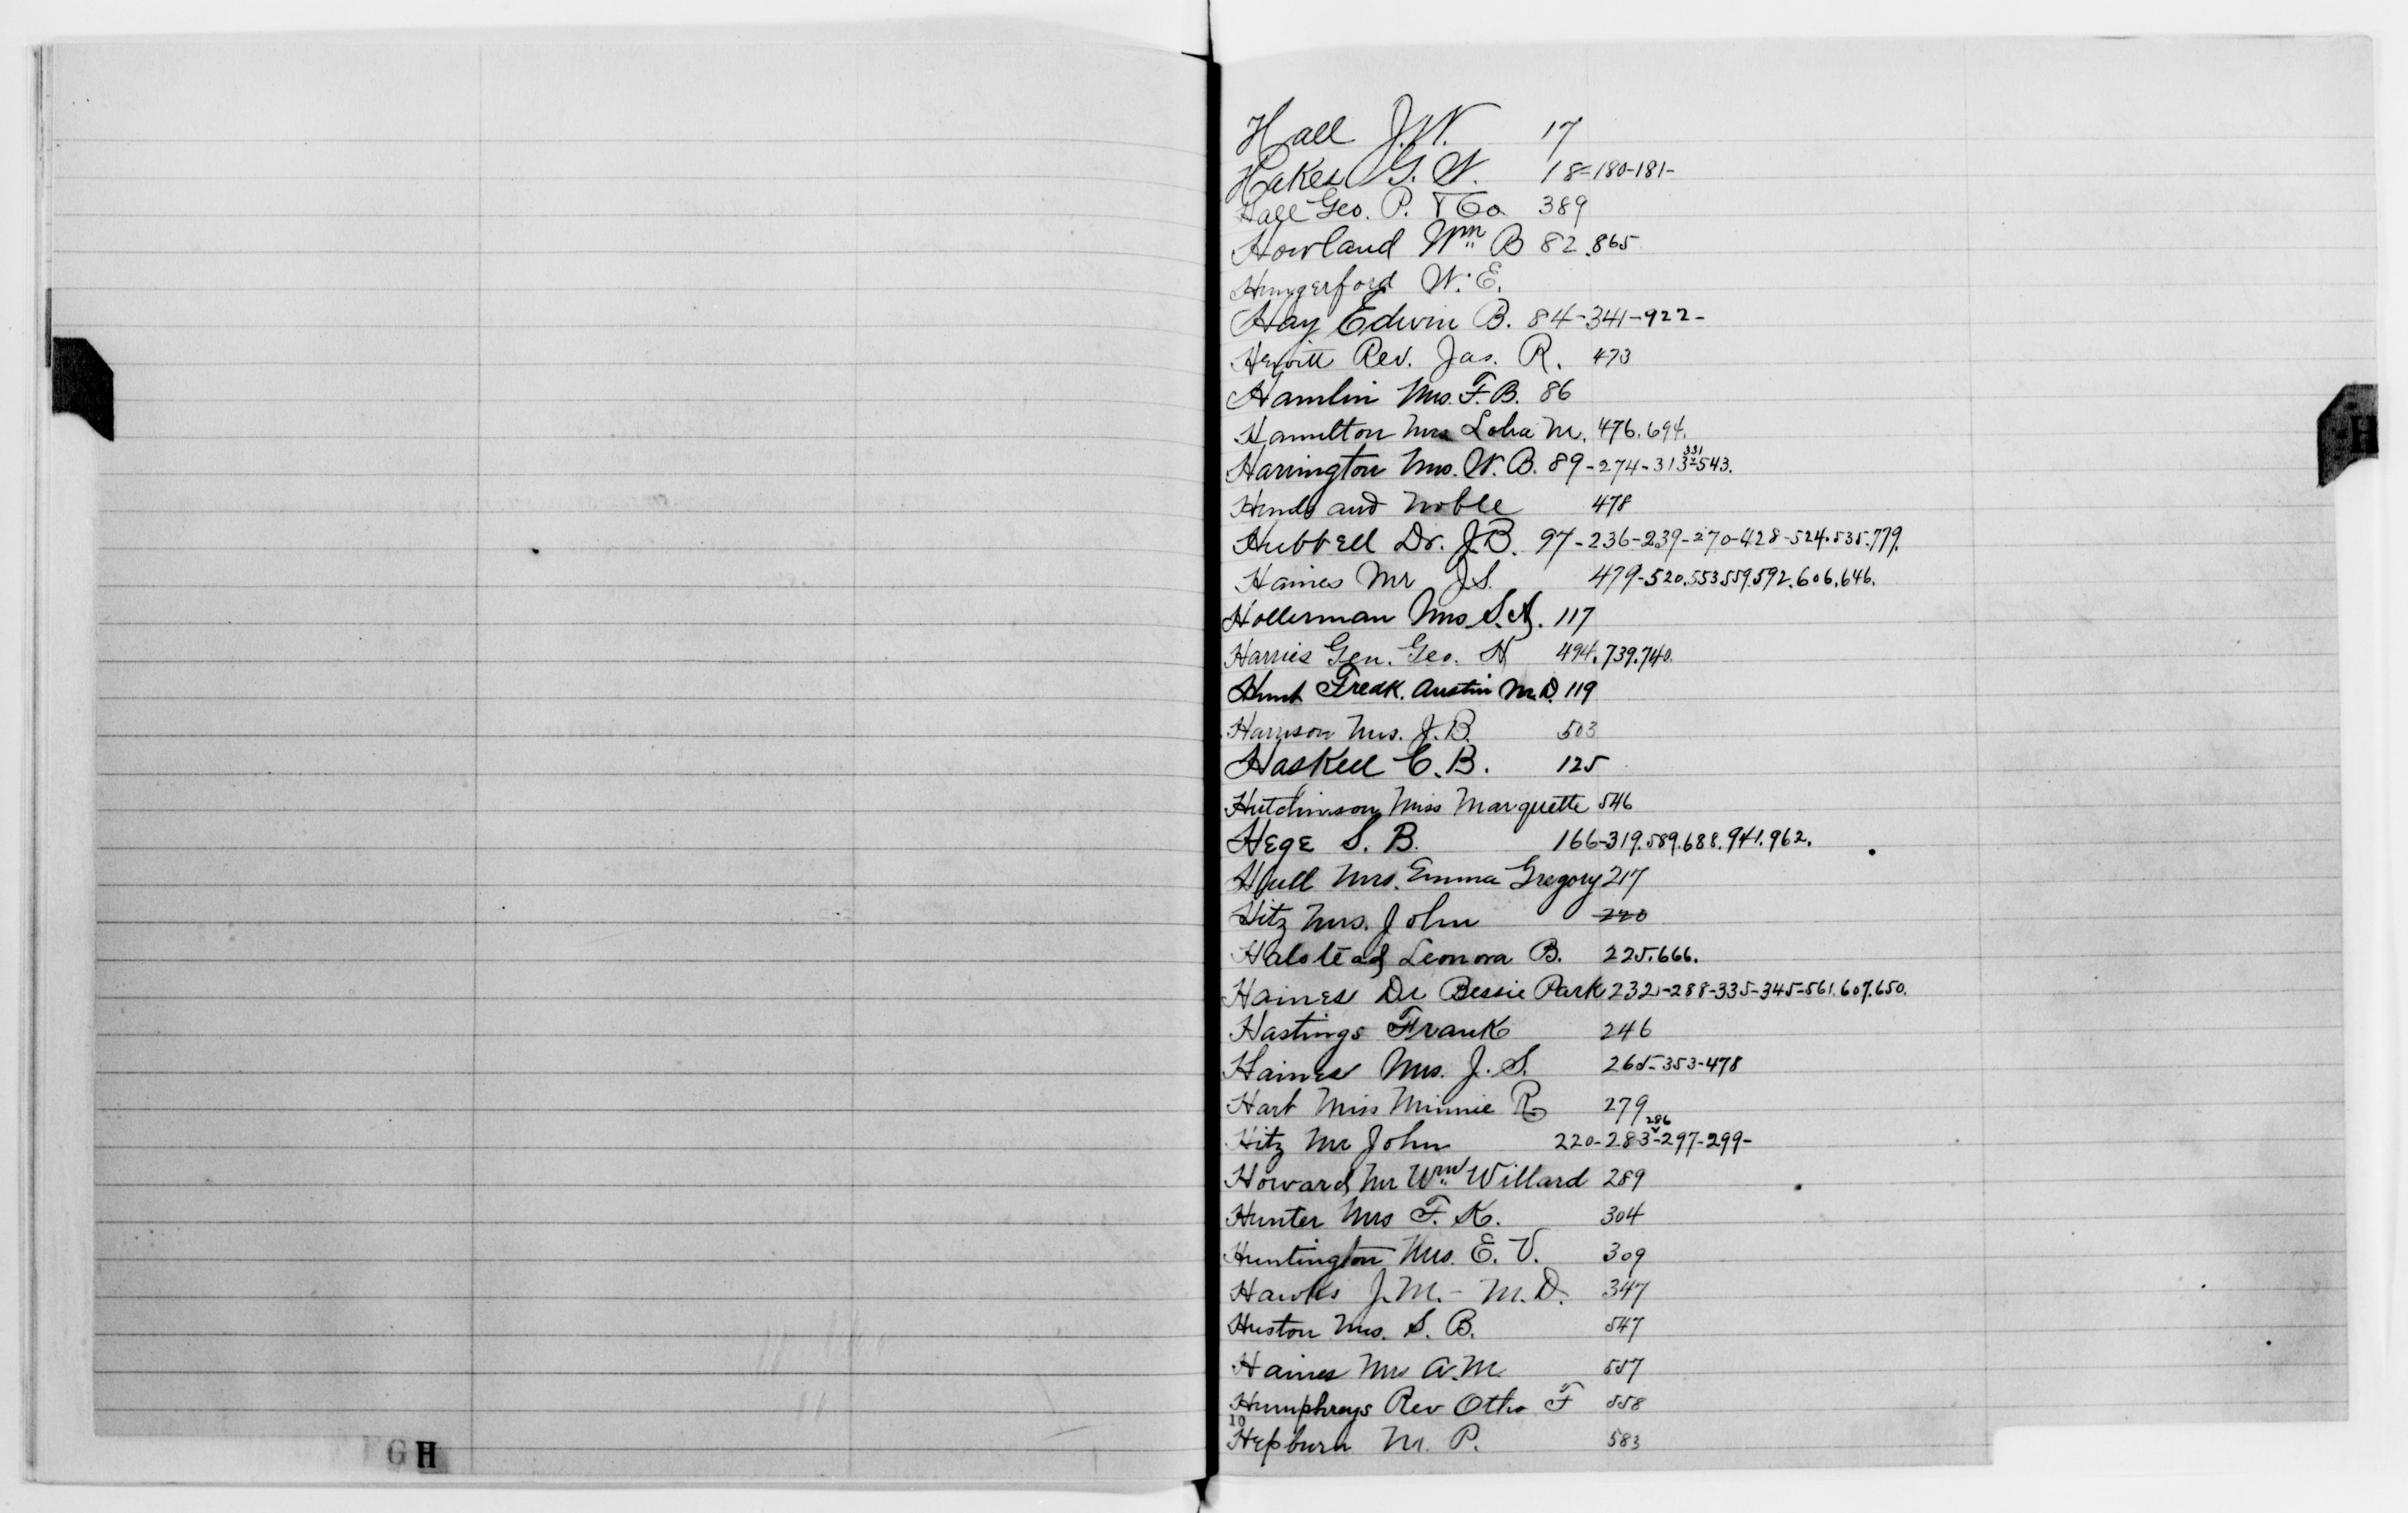 Hall J.W. 17
Hakes G. W. 18-180-181-
Hall Geo. P. & Co 389
Howland Wm B 82.865
Hungerford W. E.
Hay Edwin B. 84-341-922-
Hewitt Rev. Jas. R. 473
Hamlin Mrs. F. B. 86
Hamilton Mrs M. 476.694.
331
Harrington Mrs. W. B. 89-274-313-543.
Hinds and Noble 478
Hubbell Dr. J.B. 97-236-239-270-428-524.535.779.
Haines Mr J.S. 479-520.553.559.592.606.646.
Hollerman Mrs S.A. 117
Harries Gen. Geo. H 494.739.740.
Hunt Fredk. Austin M.D. 119
Harrison Mrs. J. B. 503
Haskell C.B. 125
Hutchinson Miss Marquette 546
Hege S. B. 166-319.589.688.941.962.
Hull Mrs. Emma Gregory 217
Hitz Mrs. John 220
Halstead Leonora B. 225.666.
Haines Dr Bessie Park 232-288-335-345-561.607.650.
Hastings Frank 246
Haines Mrs. J. S. 265-353-478
Hart Miss Minnie R 279
286
Hitz Mr John 220-283-297-299-
Howard Mr Wm Willard 289
Hunter Mrs F. K. 304
Huntington Mrs. E. V. 309
Hawks J. M. - M. D. 347
Huston Mrs. S. B. 547
Haines A. M. 557
Humphreys Rev Otho F 558
10
Hepburn M. P. 583
GH
H